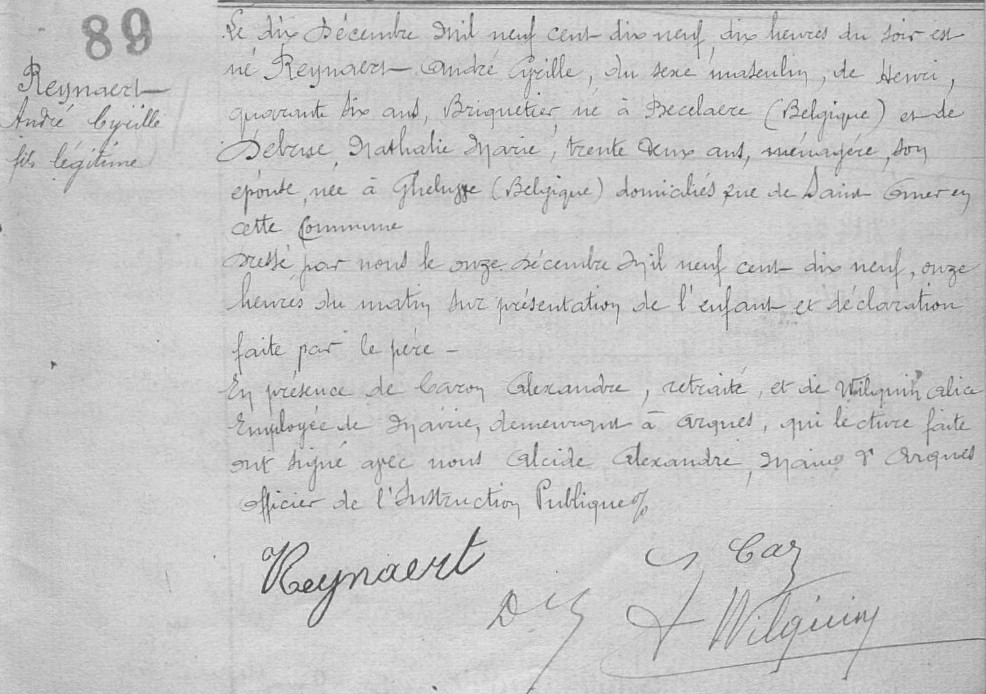 89
Reynaert
André Cyrille
fils légitime
Le dix Décembre Mil neuf cent dix neuf, dix heures du soir est
né Reynaert André Cyrille, du sexe masculin, de Henri,
quarante six ans, Briquetier né à Becelaere (Belgique) et de
Nathalie Marie, trente deux ans, ménagère, son
épouse, née à (Belgique) domiciliés rue de Saint Omer en
cette Commune
Dressé par nous le onze Décembre Mil neuf cent dix neuf, onze
heures du matin sur présentation de l'enfant et déclaration
faite par le père -
En présence de Caron Alexandre, retraité, et de Wilquin Alice
Employée de Mairie, demeurant à Arques, qui lecture faite
ont signé avec nous Alcide Alexandre, Maire d'Arques
officier de l'Instruction Publique
Reynaert
Wilquin